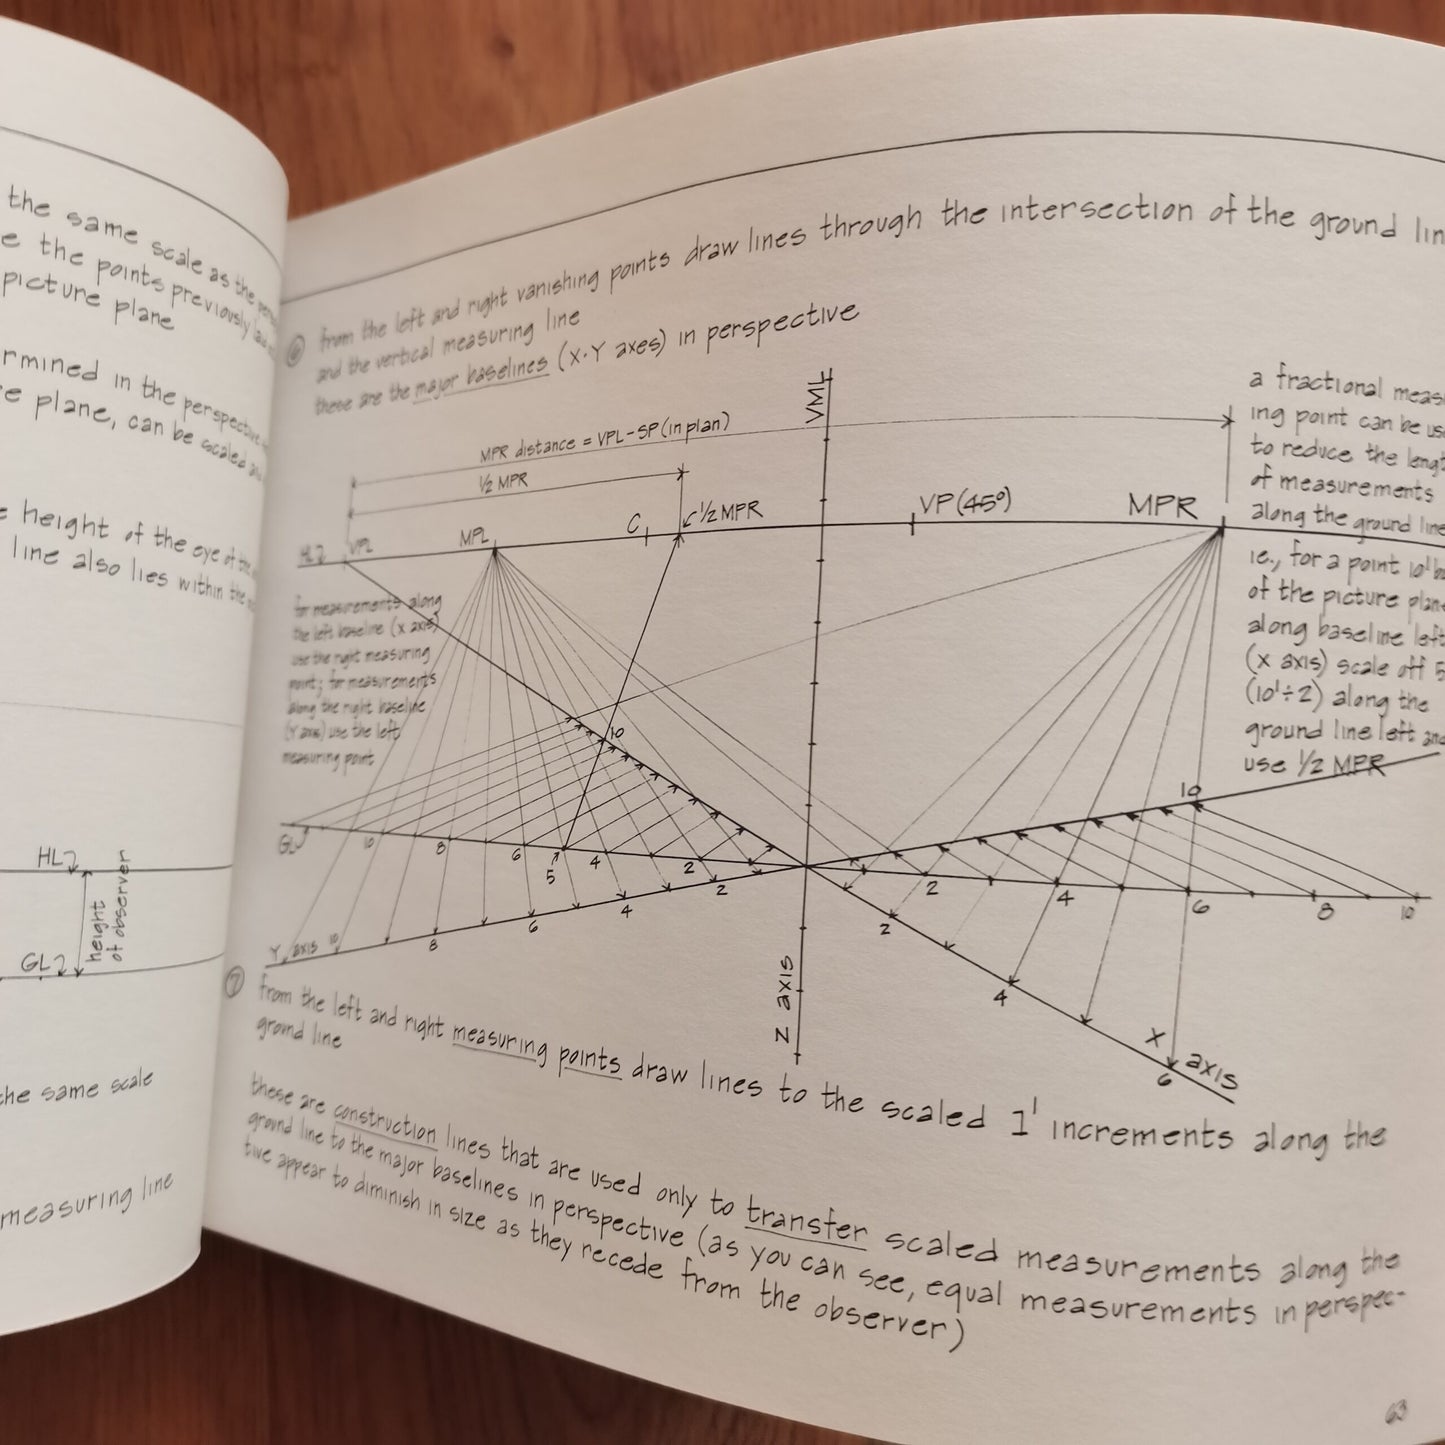 the same scale as the
e the points previously
picture plane
rmined in the perspective
re plane, can be scaled
e height of the eye of the
line also lies within the
HL
height of observer
GL
the same scale
measuring line
⑥ from the left and right vanishing points draw lines through the intersection of the ground lin
and the vertical measuring line
these are the major baselines (X·Y axes) in perspective
VML
MPR distance = VPL-SP (in plan)
½ MPR
HL
VPL
MPL
C
½ MPR
VP (45°)
MPR
for measurements along
the left baseline (x axis)
use the right measuring
point; for measurements
along the right baseline
(Y axis) use the left
measuring point
a fractional meas
ing point can be us
to reduce the leng
of measurements
along the ground line
ie., for a point 10' b
of the picture plan
along baseline left
(X axis) scale off 5
(10'÷2) along the
ground line left an
use ½ MPR
10
10
GL
10
8
6
5
4
2
2
4
6
8
10
2
4
6
8
10
Y axis
2
4
6
X axis
Z axis
⑦ from the left and right measuring points draw lines to the scaled 1' increments along the
ground line
these are construction lines that are used only to transfer scaled measurements along the
ground line to the major baselines in perspective (as you can see, equal measurements in perspec-
tive appear to diminish in size as they recede from the observer)
63